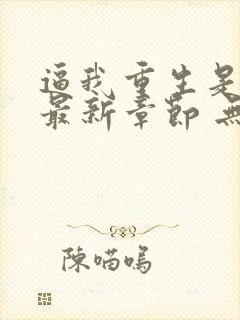 逼我重生是
最新章節 無
陳喵嗚